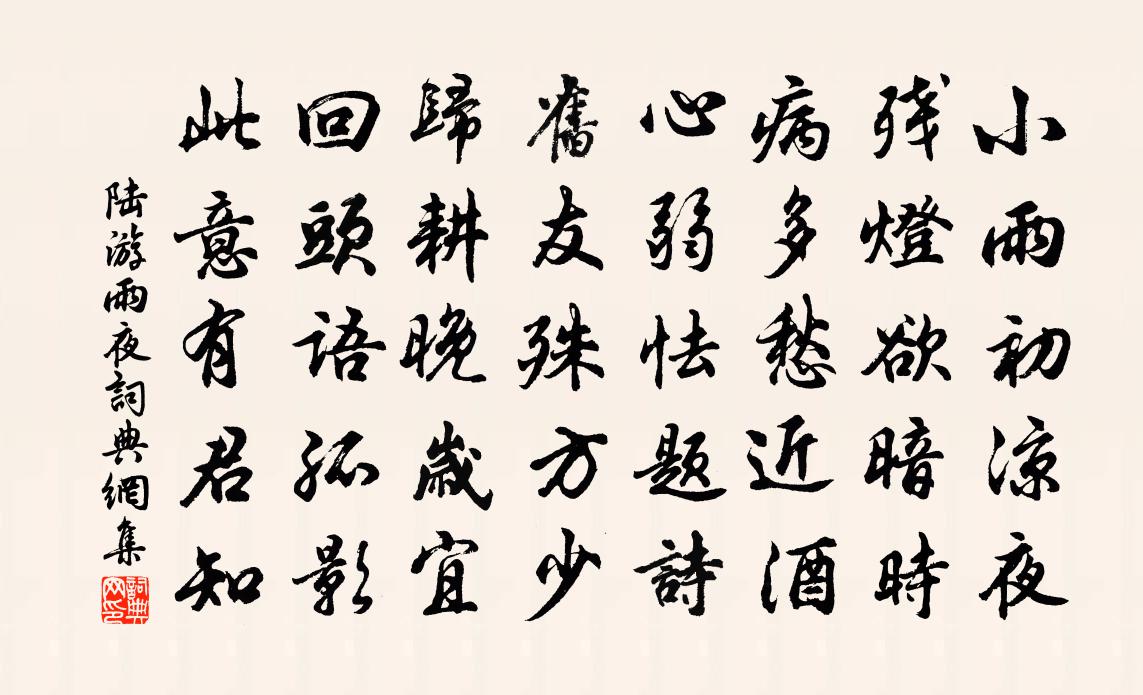 小雨初涼夜
残燈欲暗時
病多愁近酒
心弱怯題詩
舊友殊方少
歸耕晚歲宜
回頭語孤影
此意有君知
陆游雨夜詞典網集
詞典网印